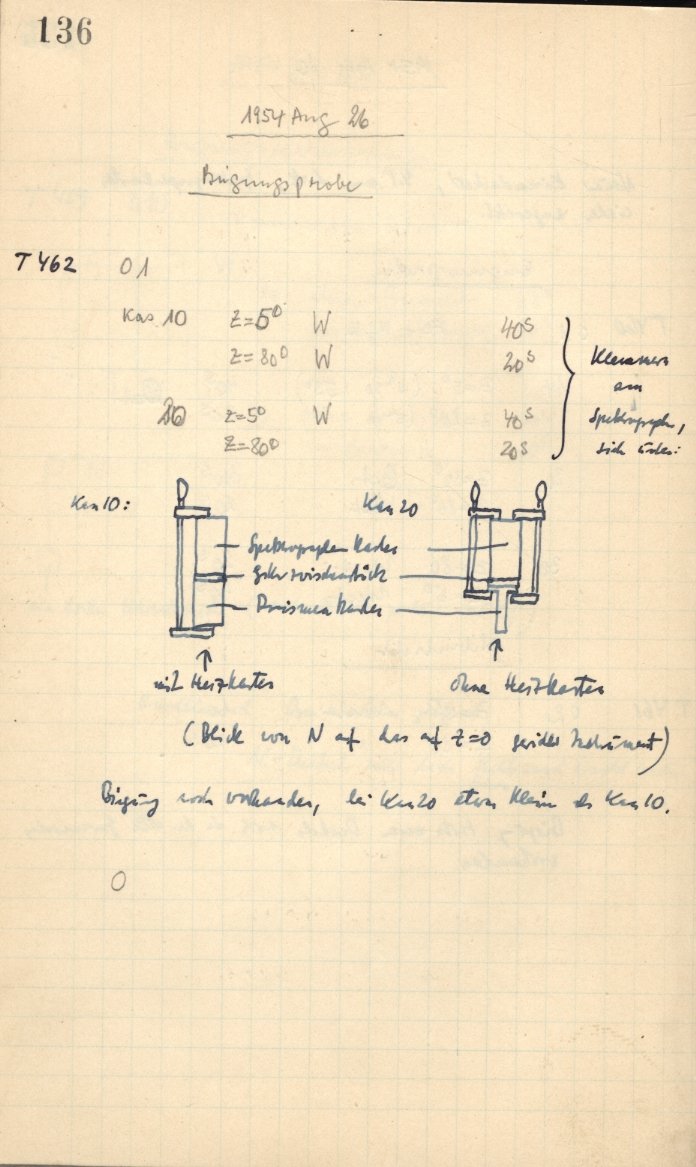 136
1954 Aug 26
Biegungsprobe
T 462 01
Kas. 10 Z=5° W 40s
Z=80° W 20s
20 Z=5° W 40s
Z=80° 20s
Klemmern
am
Spektrograph,
sich
Kas 10: Kas 20
Spektrographenkasten
Zwischenstück
Prismenkasten
mit Heizkasten ohne Heizkasten
(Blick von N auf das auf Z=0 Instrument)
Biegung noch vorhanden, bei Kas 20 etwas kleiner als Kas 10.
0